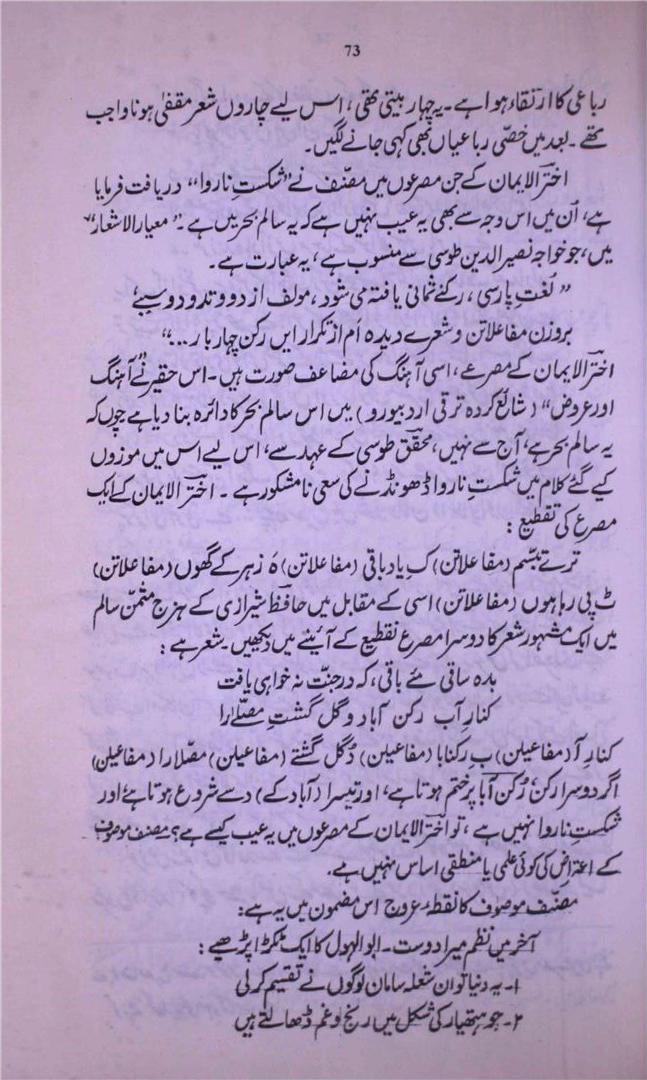 73
رباعی کا ارتقاء ہوا ہے۔ یہ چہار بیتی تھی، اس لیے چاروں شعر مقفیٰ ہونا واجب
تھے۔ بعد میں خصّی رباعیاں بھی کہی جانے لگیں۔
اخترالایمان کے جن مصرعوں میں مصنف نے "شکستِ ناروا" دریافت فرمایا
ہے، اُن میں اس وجہ سے بھی یہ عیب نہیں ہے کہ یہ سالم بحر میں ہے۔ "معیار الاشعار"
میں، جو خواجہ نصیر الدین طوسی سے منسوب ہے، یہ عبارت ہے۔
"لغتِ پارسی، رکنے ثمانی یافتہ می شود، مولف از دو وتد و دو سببے
بروزن مفاعلاتن و شعرے دیدہ اَم از تکرار ایں رکن چہار بار ..."
اخترالایمان کے مصرعے، اسی آہنگ کی مضاعف صورت ہیں۔ اس حقیر نے "آہنگ
اور عروض" (شائع کردہ ترقی اردو بیورو) میں اس سالم بحر کا دائرہ بنا دیا ہے چوں کہ
یہ سالم بحر ہے، آج سے نہیں، محقق طوسی کے عہد سے، اس لیے اس میں موزوں
کیے گئے کلام میں شکستِ ناروا ڈھونڈنے کی سعی نا مشکور ہے۔ اخترالایمان کے ایک
مصرع کی تقطیع:
ترے تبسّم (مفاعلاتن) کِ یاد باقی (مفاعلاتن) ہَ زہر کے گھوں (مفاعلاتن)
ٹ پی رہا ہوں (مفاعلاتن) اسی کے مقابل میں حافظ شیرازی کے ہزج مثمّن سالم
میں ایک مشہور شعر کا دوسرا مصرع تقطیع کے آئینے میں دیکھیں۔ شعر ہے:
بدہ ساقی مئے باقی، کہ در جنّت نہ خواہی یافت
کنارِ آب رکن آباد و گل گشتِ مصلّے را
کنارِ آ (مفاعیلن) بِ رکنابا (مفاعیلن) دُ گل گشتے (مفاعیلن) مصلّا را (مفاعیلن)
اگر دوسرا رکن، رُکن آبا پر ختم ہوتا ہے، اور تیسرا (آباد کے) د سے شروع ہوتا ہے اور
شکستِ ناروا نہیں ہے، تو اخترالایمان کے مصرعوں میں یہ عیب کیسے ہے؟ مصنف موصوف
کے اعتراض کی کوئی علمی یا منطقی اساس نہیں ہے۔
مصنف موصوف کا نقطۂ عروج اس مضمون میں یہ ہے:
آخر میں نظم میرا دوست۔ ابو الہول کا ایک ٹکڑا پڑھیے:
۱۔ یہ دنیا تو ان شعلہ سامان لوگوں نے تقسیم کر لی
۲۔ جو ہتھیار کی شکل میں رنج و غم ڈھالتے ہیں